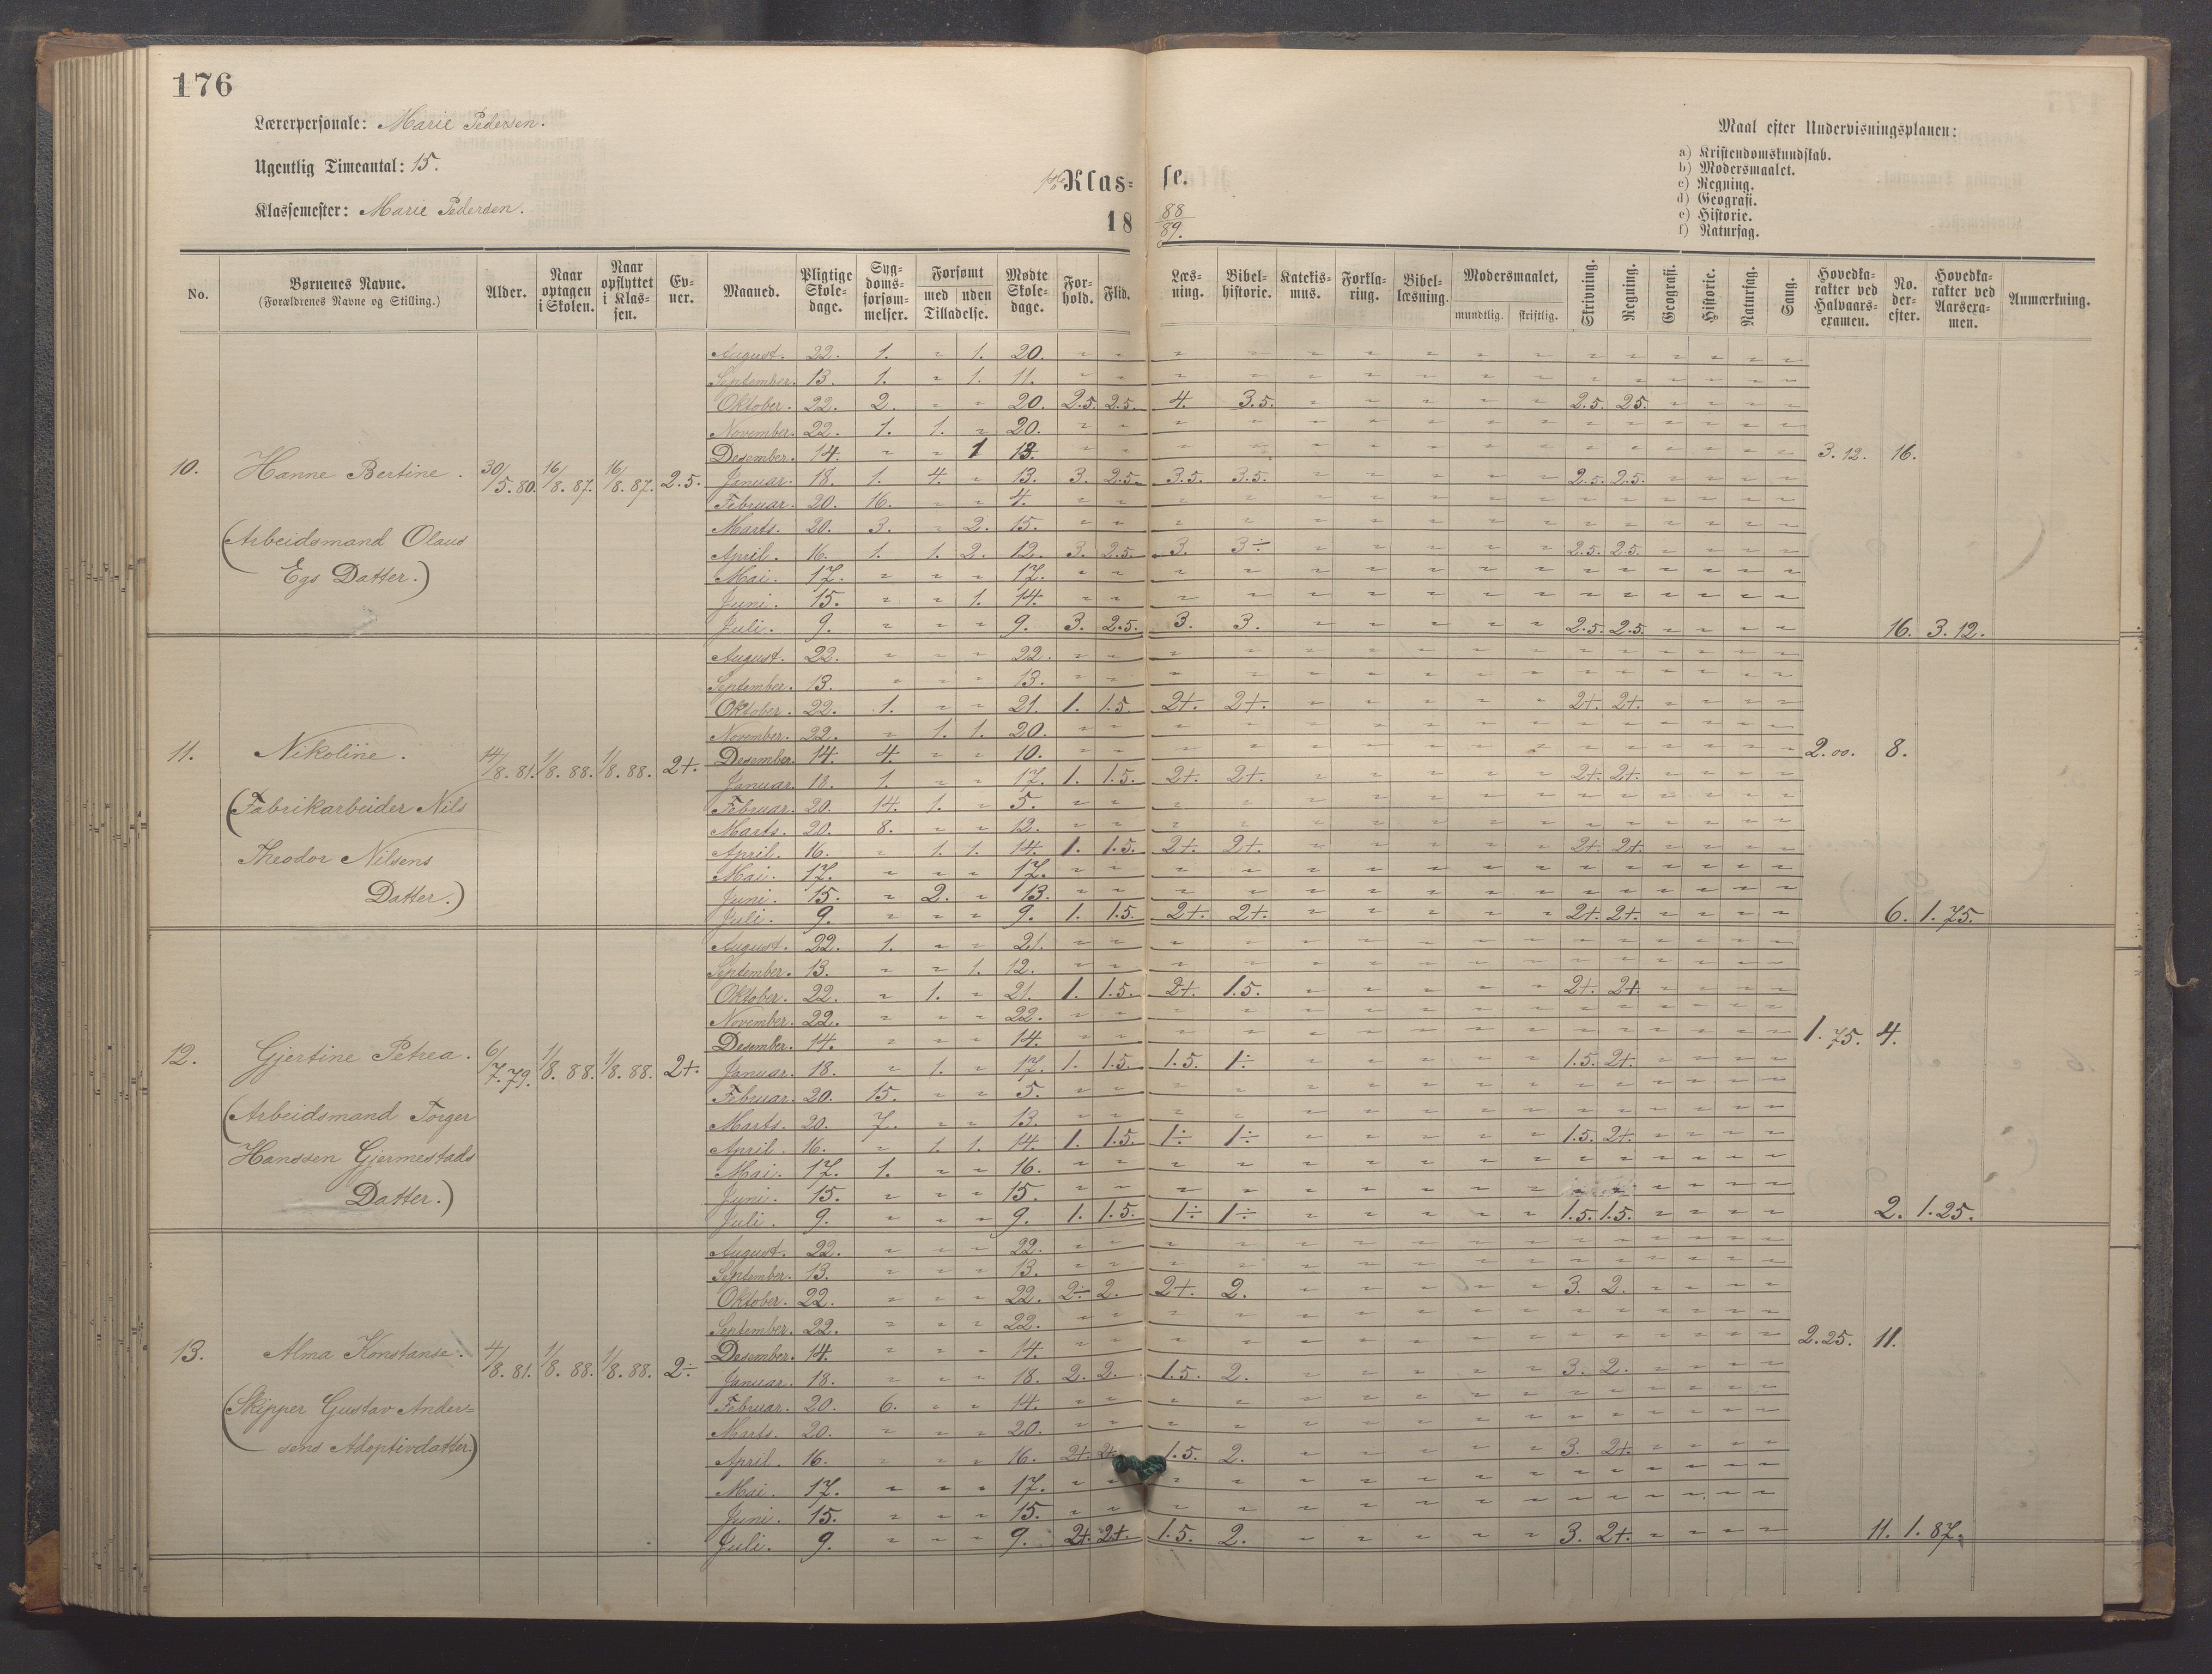 176
Lærerpersonale: Marie Pedersen.
Ugentlig Timeantal: 15.
Klassemester: Marie Pedersen.
1ste Klasse.
1888/89.
Maal efter Undervisningsplanen:
a) Kristendomskundskab.
b) Modersmaalet.
c) Regning.
d) Geografi.
e) Historie.
f) Naturfag.
No. | Børnenes Navne. (Forældrenes Navne og Stilling.) | Alder. | Naar optagen i Skolen. | Naar opflyttet i Klassen. | Evner. | Maaned. | Pligtige Skoledage. | Sygdomsforsømmelser. | Forsømt med uden Tilladelse. | Mødte Skoledage. | Forhold. | Flid. | Læsning. | Bibelhistorie. | Katekismus. | Forklaring. | Bibellæsning. | Modersmaalet, mundtlig. skriftlig. | Skrivning. | Regning. | Geografi. | Historie. | Naturfag. | Sang. | Hovedkarakter ved Halvaarsexamen. | No. derefter. | Hovedkarakter ved Aarsexamen. | Anmærkning.
10. Hanne Bertine. 30/5.80. 16/8.87. 16/8.87. 2.5. 3.12. 16.
(Arbeidsmand Olaus
Egs Datter.)
August. 22. 1. " 1. 20.
September. 13. 1. " 1. 11.
Oktober. 22. 2. " " 20. 2.5. 2.5. 4. 3.5. 2.5. 2.5.
November. 22. 1. 1. " 20.
Desember. 14. " " 1 13.
Januar. 18. 1. 4. " 13. 3. 2.5. 3.5. 3.5. 2.5. 2.5.
Februar. 20. 16. " " 4.
Marts. 20. 3. " 2. 15.
April. 16. 1. 1. 2. 12. 3. 2.5. 3. 3÷ 2.5. 2.5.
Mai. 17. " " " 17.
Juni. 15. " " 1. 14.
Juli. 9. " " " 9. 3. 2.5. 3. 3. 2.5. 2.5. 16. 3.12.
11. Nikoline. 14/8.81. 1/8.88. 1/8.88. 2+. 2.00. 8.
(Fabrikarbeider Nils
Theodor Nilsens
Datter.)
August. 22. " " " 22.
September. 13. " " " 13.
Oktober. 22. 1. " " 21. 1. 1.5. 2+. 2+. 2+. 2+.
November. 22. " 1. 1. 20.
Desember. 14. 4. " " 10.
Januar. 18. 1. " " 17. 1. 1.5. 2+. 2+. 2+. 2+.
Februar. 20. 14. 1. " 5.
Marts. 20. 8. " " 12.
April. 16. " 1. 1. 14. 1. 1.5. 2+. 2+. 2+. 2+.
Mai. 17. " " " 17.
Juni. 15. " 2. " 13.
Juli. 9. " " " 9. 1. 1.5. 2+. 2+. 2+. 2+. 6. 1.75.
12. Gjertine Petrea. 6/7.79. 1/8.88. 1/8.88. 2+. 1.75. 4.
(Arbeidsmand Torger
Hanssen Gjermestads
Datter.)
August. 22. 1. " " 21.
September. 13. " " 1. 12.
Oktober. 22. " 1. " 21. 1. 1.5. 2+. 1.5. 2+. 2+.
November. 22. " " " 22.
Desember. 14. " " " 14.
Januar. 18. " 1. " 17. 1. 1.5. 1.5. 1÷ 1.5. 2+.
Februar. 20. 15. " " 5.
Marts. 20. 7. " " 13.
April. 16. " 1. 1. 14. 1. 1.5. 1÷ 1÷ 1.5. 2+.
Mai. 17. 1. " " 16.
Juni. 15. " " " 15.
Juli. 9. " " " 9. 1. 1.5. 1÷ 1÷ 1.5. 1.5. 2. 1.25.
13. Alma Konstanse. 4/8.81. 1/8.88. 1/8.88. 2÷ 2.25. 11.
(Skipper Gustav Ander=
sens Adoptivdatter.)
August. 22. " " " 22.
September. 13. " " " 13.
Oktober. 22. " " " 22. 2÷ 2. 2+. 2. 3. 2.
September. 22. " " " 22.
Desember. 14. " " " 14.
Januar. 18. " " " 18. 2. 2. 1.5. 2. 3. 2.
Februar. 20. 6. " " 14.
Marts. 20. " " " 20.
April. 16. " " " 16. 2+. 2+. 1.5. 2. 3. 2+.
Mai. 17. " " " 17.
Juni. 15. " " " 15.
Juli. 9. " " " 9. 2+. 2+. 1.5. 2. 3. 2+. 11. 1.87.